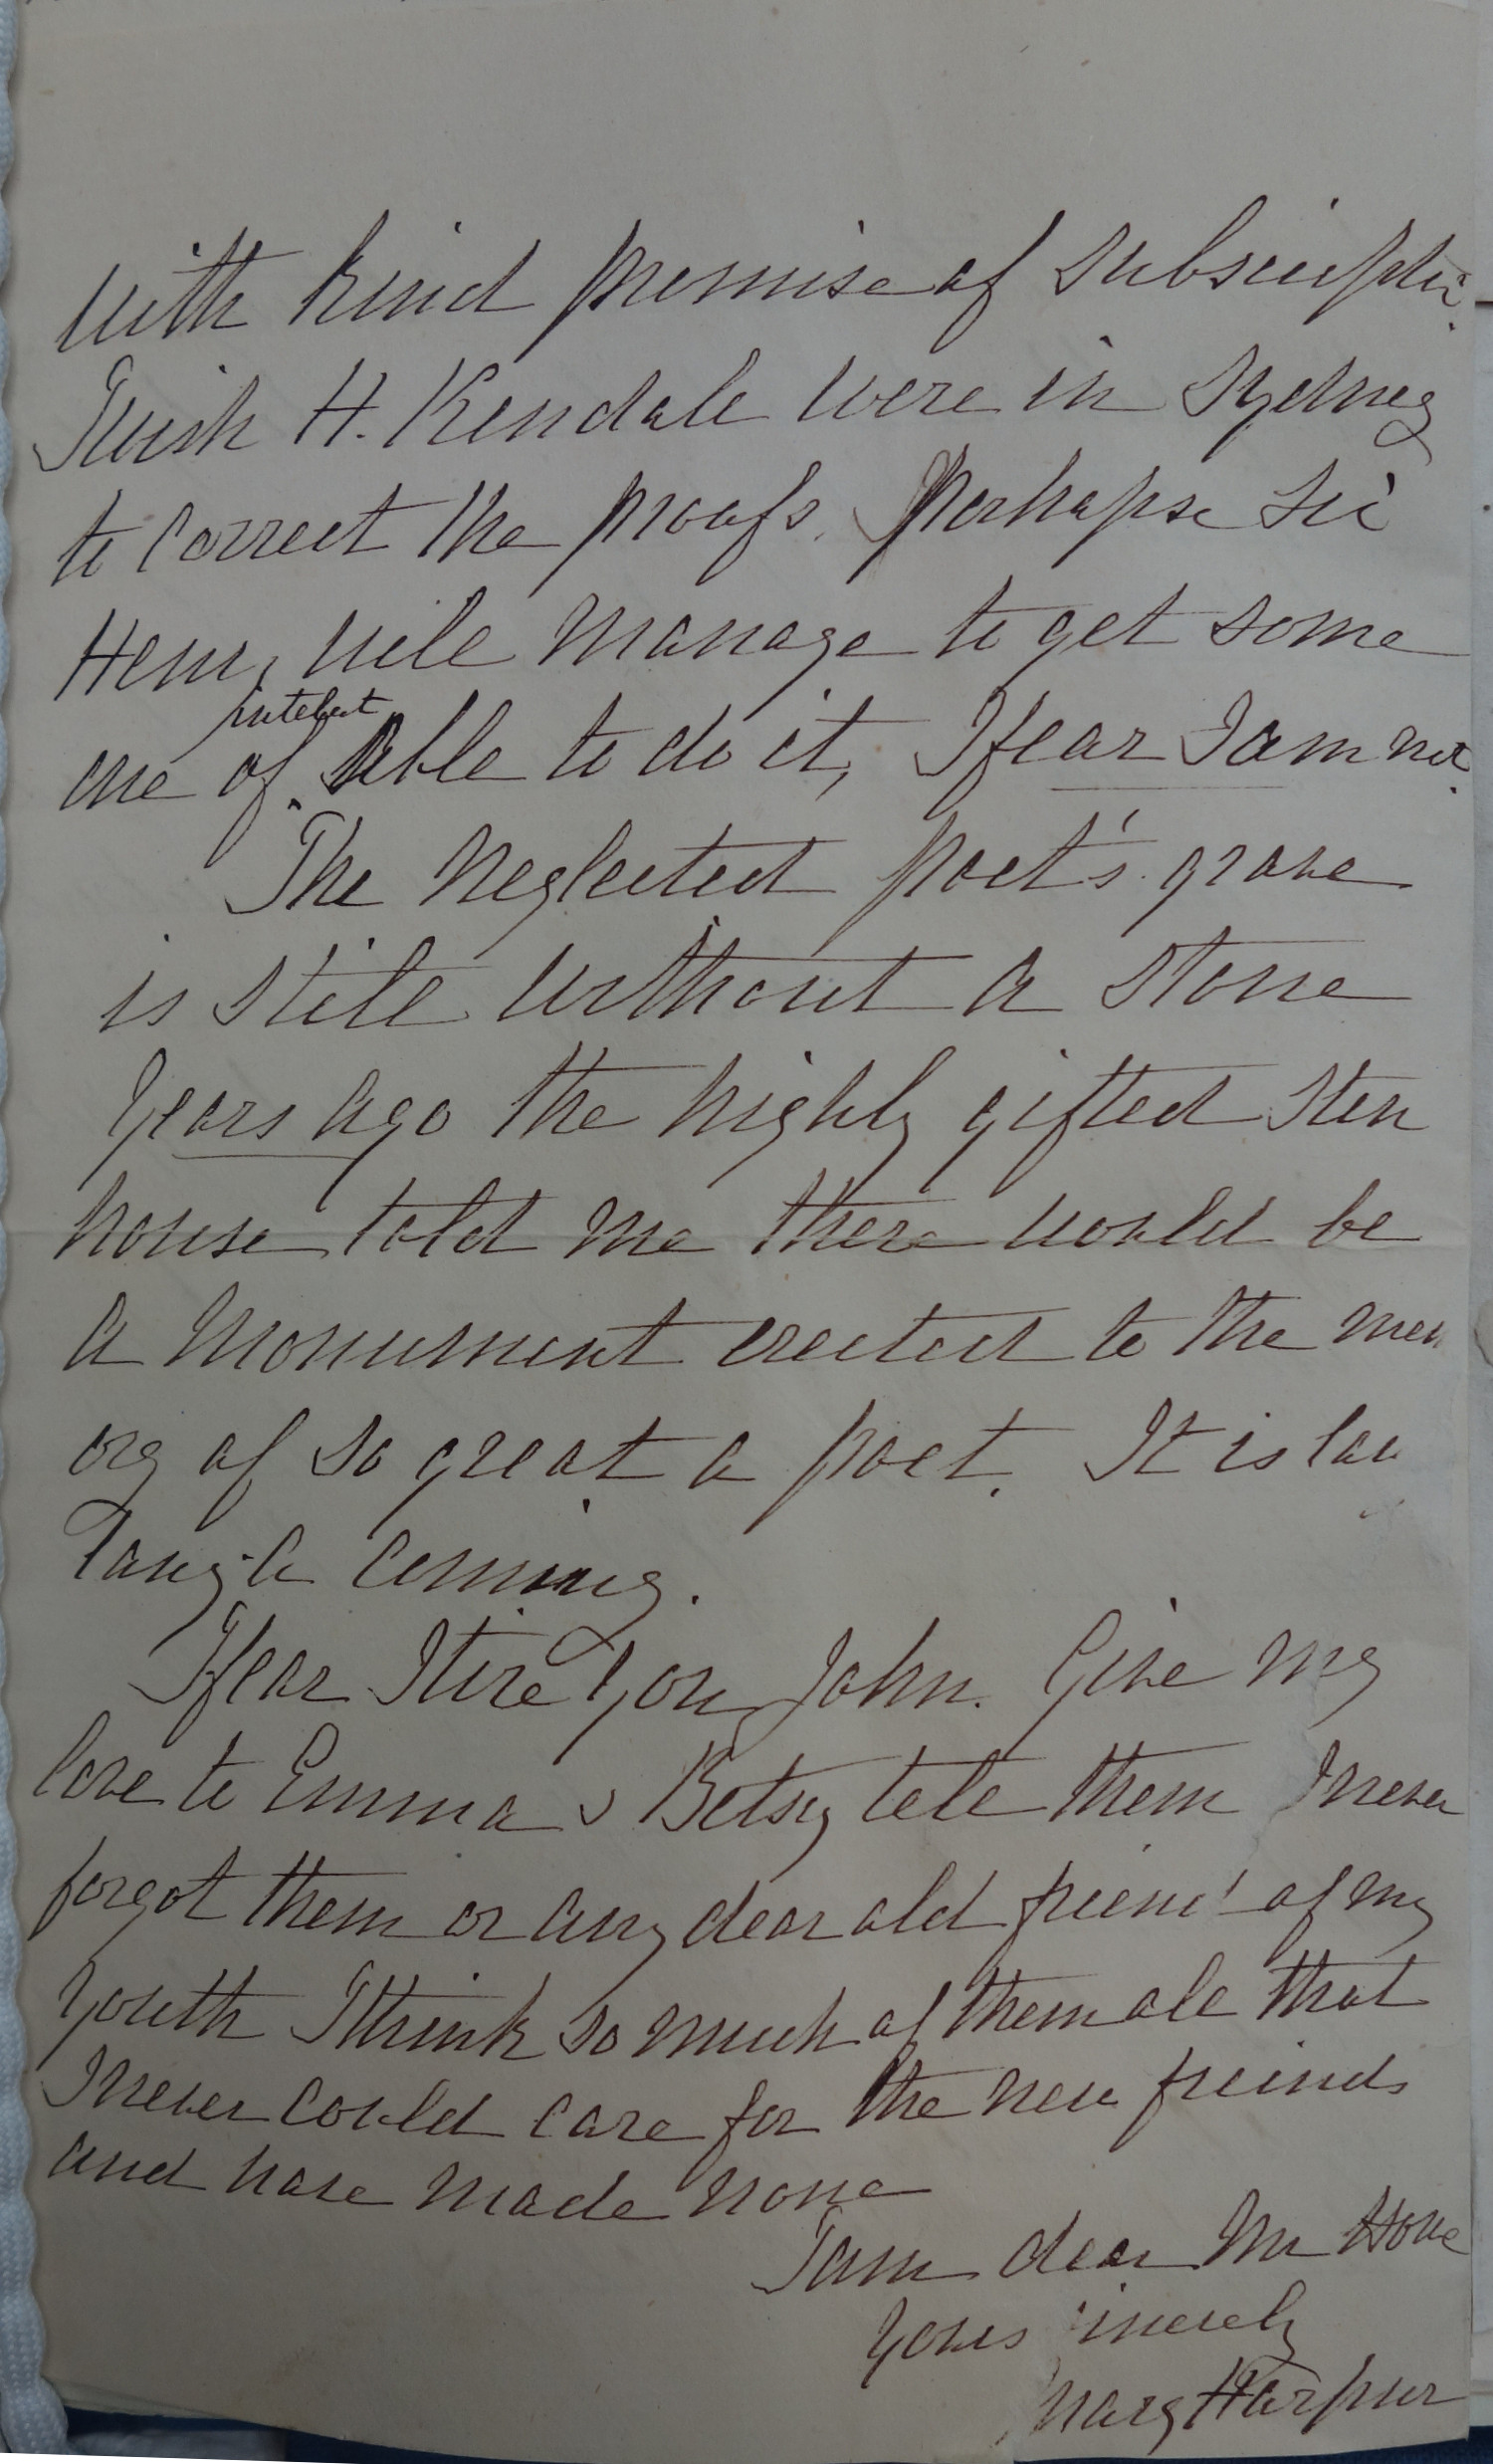 with kind promise of subscriptio
I wish H. Kendall were in Sydney
to correct the proofs. Perhapse Sir
Henry will manage to get some
intellect
one of able to do it, I fear I am not.
The neglected poet's grave
is still without a stone
Years ago the highly gifted Sten
house told me there would be
a Monument erected to the mem
ory of so great a poet. It is
long a coming.
I fear I tire you John. Give my
love to Emma & Betsy tell them I never
forgot them or any dear old friend of my
youth I think so much of them all that
I never could care for the new freinds
and have made none
I am dear Mr
Yours sincerely
Mary Harpur